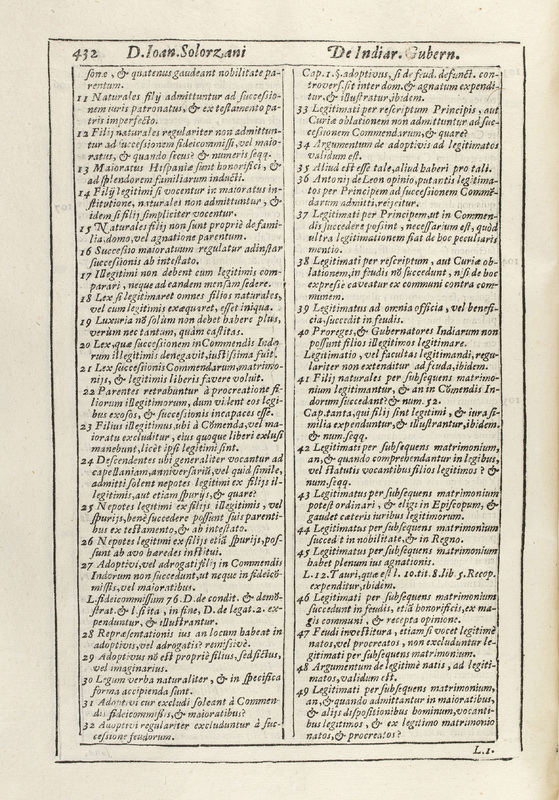 432 D. Ioan. Solorzani De Indiar. Gubern.
sonæ, & quatenus gaudeant nobilitate pa-
rentum.
11 Naturales filij admittuntur ad successio-
nem iuris patronatus, & ex testamento pa-
tris imperfecto.
12 Filij naturales regulariter non admittun-
tur ad successionem fideicommissi, vel maio-
ratus, & quando secus? & numeris seqq.
13 Maioratus Hispaniæ sunt honorifici, &
ad splendorem familiarum inducti.
14 Filij legitimi si vocentur in maioratus in-
stitutione, naturales non admittuntur, &
idem si filij simpliciter vocentur.
15 Naturales filij non sunt propriè de fami-
lia, domo, vel agnatione parentum.
16 Successio maioratuum regulatur ad instar
successionis ab intestato.
17 Illegitimi non debent cum legitimis com-
parari, neque ad eandem mensam sedere.
18 Lex si legitimaret omnes filios naturales,
vel cum legitimis exæquaret, esset iniqua.
19 Luxuria nõ solùm non debet habere plus,
verùm nec tantum, quàm castitas.
20 Lex, quæ successionem in Commendis Indo
rum illegitimis denegavit, iustissima fuit.
21 Lex successionis Commendarum, matrimo-
nijs, & legitimis liberis favere voluit.
22 Parentes retrabuntur à procreatione fi-
liorum illegitimorum, dum vident eos legi-
bus exosos, & successionis incapaces esse.
23 Filius illegitimus, ubi à Cõmenda, vel ma-
ioratu excluditur, eius quoque liberi exlusi
manebunt, licèt ipsi legitimi sint.
24 Descendentes ubi generaliter vocantur ad
capellaniam, anniversariũ, vel quid simile,
admitti solent nepotes legitimi ex filijs il-
legitimis, aut etiam spurijs, & quare?
25 Nepotes legitimi ex filijs illegitimis, vel
spurijs, benè succedere possunt suis parenti-
bus ex testamento, & ab intestato.
26 Nepotes legitimi ex filijs etiã spurijs, pos-
sunt ab avo hæredes institui.
27 Adoptivi, vel adrogati filij in Commendis
Indorum non succedunt, ut neque in fideicõ-
missis, vel maioratibus.
L. fideicommissum 76. D. de condit. & demõ-
strat. & l. si ita, in fine, D. de legat. 2. ex-
penduntur, & illustrantur.
28 Repræsentationis ius an locum habeat in
adoptivis, vel adrogatis? remissivè.
29 Adoptivus nõ est propriè filius, sed fictus,
vel imaginarius.
30 Legum verba naturaliter, & in specifica
forma accipienda sunt.
31 Adoptivi cur excludi soleant à Commen-
dis fideicomissis, & maioratibus?
32 Adoptivi regulariter excluduntur à suc-
cessione feudorum.
Cap. 1. §. adoptivus, si de feud. defunct. con-
trovers. sit inter dom. & agnatum expendi-
tur, & illustratur, ibidem.
33 Legitimati per rescriptum Principis, aut
Curiæ oblationem non admittuntur ad suc-
cessionem Commendarum, & quare?
34 Argumentum de adoptivis ad legitimatos
validum est.
35 Aliud est esse tale, aliud haberi pro tali.
36 Antonij de Leon opinio, putantis legitima-
tos per Principem ad successionem Commẽ-
darum admitti, reijcitur.
37 Legitimati per Principem, ut in Commen-
dis succedere possint, necessarium est, quòd
ultra legitimationem fiat de hoc peculiaris
mentio.
38 Legitimati per rescriptum, aut Curiæ ob-
lationem, in feudis nõ succedunt, nisi de hoc
expressè caveatur ex communi contra com-
munem.
39 Legitimatus ad omnia officia, vel benefi-
cia, succedit in feudis.
40 Proreges, & Gubernatores Indiarum non
possunt filios illegitimos legitimare.
Legitimatio, vel facultas legitimandi, regu-
lariter non extenditur ad feuda, ibidem.
41 Filij naturales per subsequens matrimo-
nium legitimantur, & an in Cõmendis In-
dorum succedant? & num. 52.
Cap. tanta, qui filij sint legitimi, & iura si-
milia expenduntur, & illustrantur, ibidem.
& num. seqq.
42 Legitimati per subsequens matrimonium,
an, & quando comprehendantur in legibus,
vel statutis vocantibus filios legitimos? &
num. seqq.
43 Legitimatus per subsequens matrimonium
potest ordinari, & eligi in Episcopum, &
gaudet cæteris iuribus legitimorum.
44 Legitimatus per subsequens matrimonium
succedit in nobilitate, & in Regno.
45 Legitimatus per subsequens matrimonium
habet plenum ius agnationis.
L. 12. Tauri, quæ est l. 10. tit. 8. lib. 5. Recop.
expenditur, ibidem.
46 Legitimatus per subsequens matrimonium
succedunt in feudis, etiã honorificis, ex ma-
gis communi, & recepta opinione.
47 Feudi investitura, etiamsi vocet legitimè
natos, vel procreatos, non excluduntur le-
gitimati per subsequens matrimonium.
48 Argumentum de legitimè natis, ad legiti-
matos, validum est.
49 Legitimati per subsequens matrimonium,
an, & quando admittantur in maioratibus,
& alijs dispositionibus hominum, vocanti-
bus legitimos, & ex legitimo matrimonio
natos, & procreatos?
L. 1.